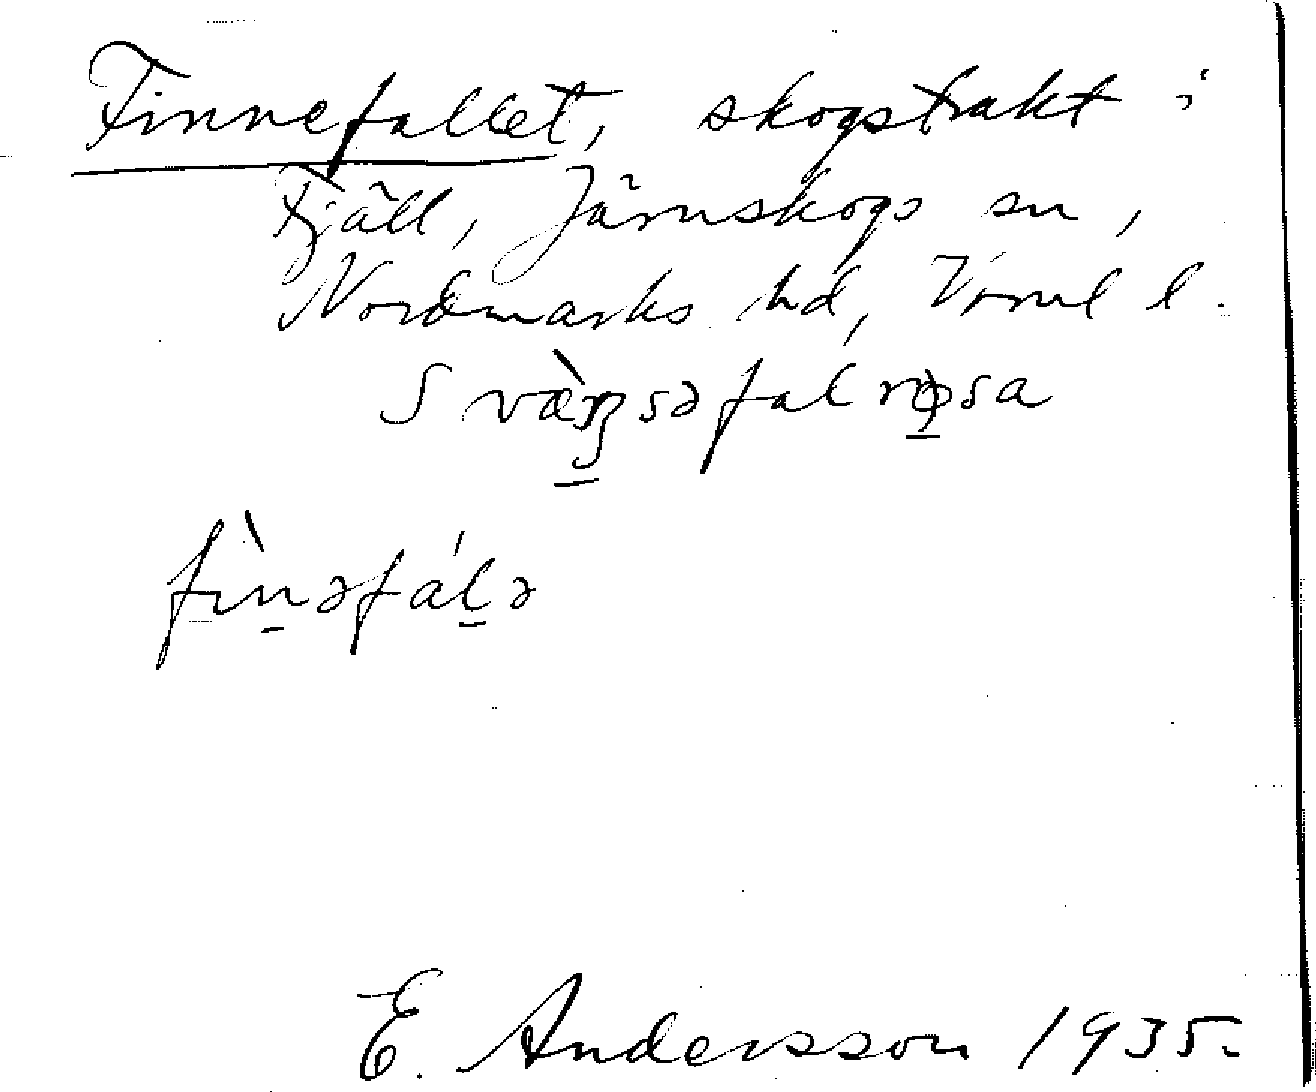 Finnefallet, skogstrakt i
Fjäll, Järnskogs sn,
Nordmarks hd, Vrml l.
fìnəfálə
E. Andersson 1935.